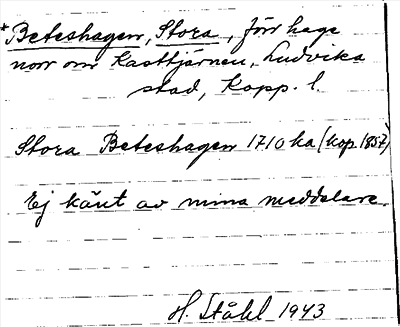 *Beteshagen, Stora, förr hage
norr om Kasttjärnen, Ludvika
stad, Kopp. l.
Stora Beteshagen 1710 ka (kop 1857)
Ej känt av mina meddelare.
H. Ståhl 1943